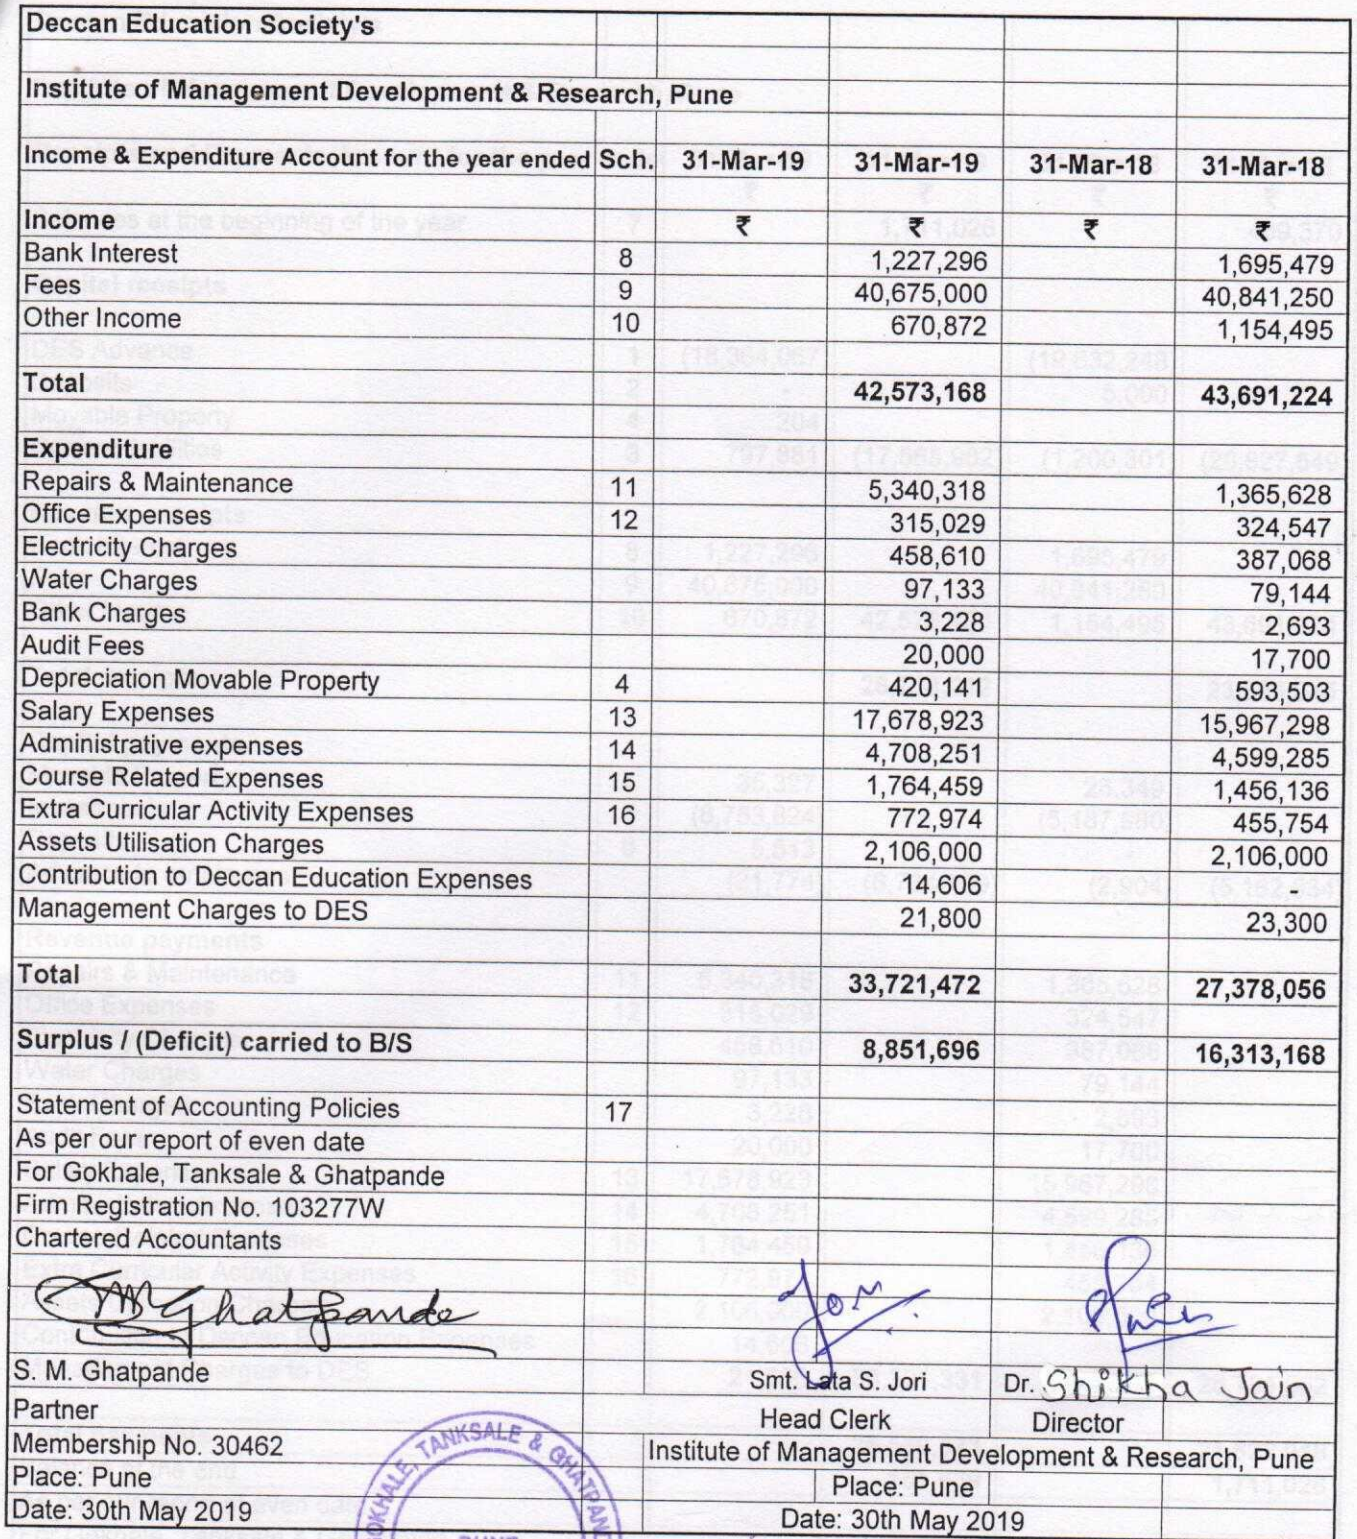 Deccan Education Society's
Institute of Management Development & Research, Pune
Income & Expenditure Account for the year ended Sch. 31-Mar-19 31-Mar-19 31-Mar-18 31-Mar-18
Income ₹ ₹ ₹ ₹
Bank Interest 8 1,227,296 1,695,479
Fees 9 40,675,000 40,841,250
Other Income 10 670,872 1,154,495
Total 42,573,168 43,691,224
Expenditure
Repairs & Maintenance 11 5,340,318 1,365,628
Office Expenses 12 315,029 324,547
Electricity Charges 458,610 387,068
Water Charges 97,133 79,144
Bank Charges 3,228 2,693
Audit Fees 20,000 17,700
Depreciation Movable Property 4 420,141 593,503
Salary Expenses 13 17,678,923 15,967,298
Administrative expenses 14 4,708,251 4,599,285
Course Related Expenses 15 1,764,459 1,456,136
Extra Curricular Activity Expenses 16 772,974 455,754
Assets Utilisation Charges 2,106,000 2,106,000
Contribution to Deccan Education Expenses 14,606 -
Management Charges to DES 21,800 23,300
Total 33,721,472 27,378,056
Surplus / (Deficit) carried to B/S 8,851,696 16,313,168
Statement of Accounting Policies 17
As per our report of even date
For Gokhale, Tanksale & Ghatpande
Firm Registration No. 103277W
Chartered Accountants
Ghatpande
S. M. Ghatpande Smt. Lata S. Jori Dr. Shikha Jain
Partner Head Clerk Director
Membership No. 30462 Institute of Management Development & Research, Pune
Place: Pune Place: Pune
Date: 30th May 2019 Date: 30th May 2019
GOKHALE, TANKSALE & GHATPAND